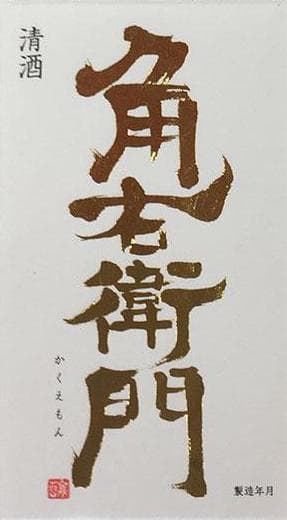 清酒
角右衛門
かくえもん
製造年月